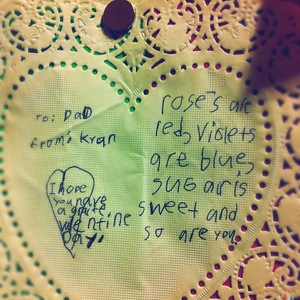 to: DaD
from: Kyan
I hope
you have
a grate
valentine
Day,
rose's are
red, Violets
are blue,
sugar is
sweet and
so are you,